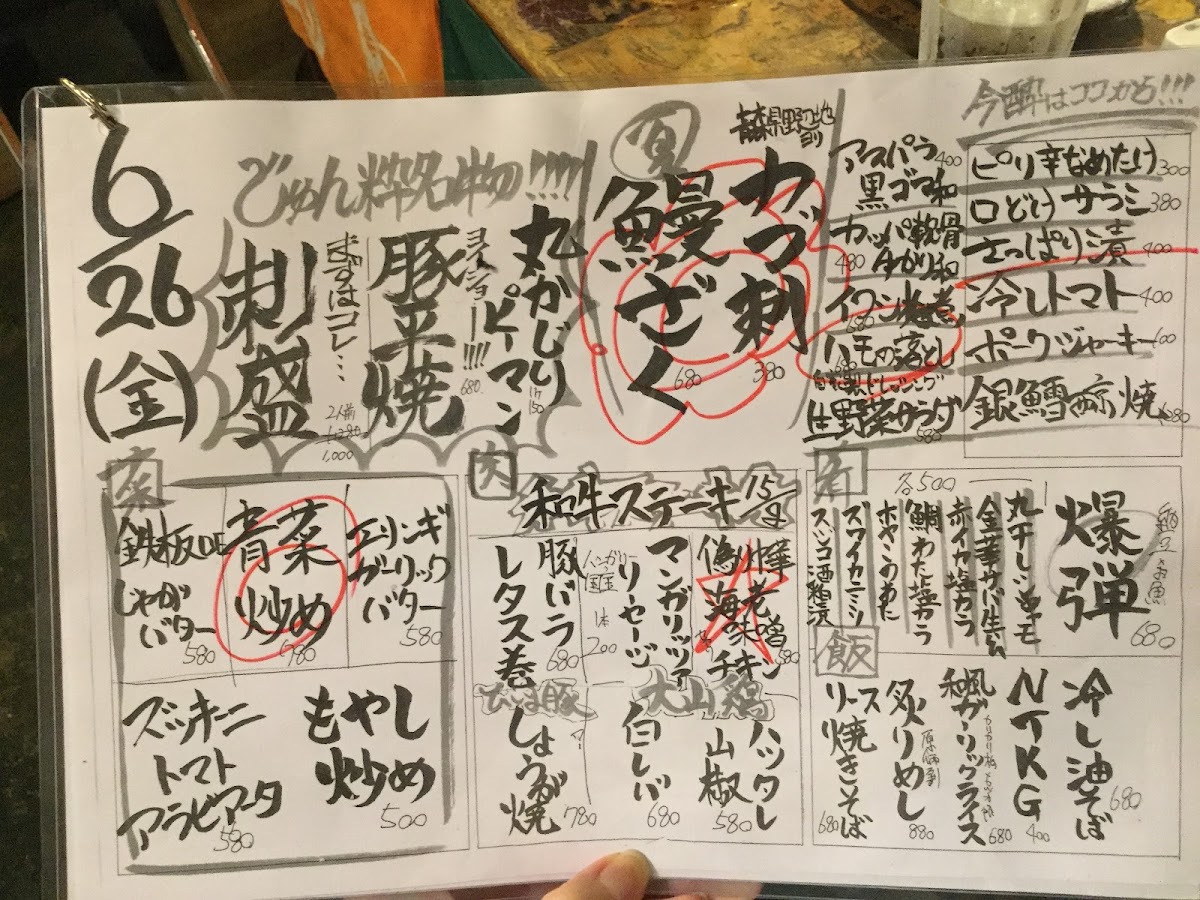 6/26
(金)
じゅん粋名物!!!!
丸かじりピーマン
1ケ150
ヨイショー!!!!
豚平焼
680
まずはコレ…
刺盛
2人前
1,280
1,000
夏
青森県野辺地
かつ刺
380
鰻ざく
680
アスパラ
黒ゴマ和
400
カッパ軟骨
ゆかり和
480
イワシ
680
ハモの落とし
680
ドレッシング
生野菜サラダ
580
今酔はココから!!!
ピリ辛なめたけ 300
口どけサラミ 380
さっぱり漬 400
冷しトマト 400
ポークジャーキー 600
銀鱈西京焼 1280
菜
鉄板DE
じゃがバター
580
青菜炒め
780
エリンギ
ガーリック
バター
580
ズッキーニ
トマト
アラビアータ
580
もやし
炒め
500
肉
和牛ステーキ 15/g
樺老
偽海味噌
チキン
580
マンガリッツァ
リーセージ
ハンガリー国宝
1本200
豚バラ
レタス巻
680
大山鶏
ハツタレ
山椒
580
白レバ
680
豚
しょうが焼
780
肴
各500
爆弾
680
納豆とお魚
丸干しシシャモ
金華サバ生ハム
赤イカ塩カラ
鯛わた塩カラ
ホヤこのわた
ズワイカニミソ
スジコ酒粕漬
飯
冷し油そば
680
NTKG
400
和風ガーリックライス
680
炙りめし
880
ソース焼きそば
680